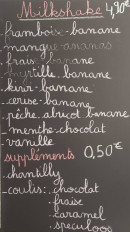 Milkshake 4,90€
.framboise-banane
.mangue-ananas
.fraise-banane
.myrtille-banane
.kiwi-banane
.cerise-banane
.pêche.abricot banane
.menthe-chocolat
.vanille
suppléments 0,50€
.chantilly
.coulis: .chocolat
.fraise
.caramel
.speculoos